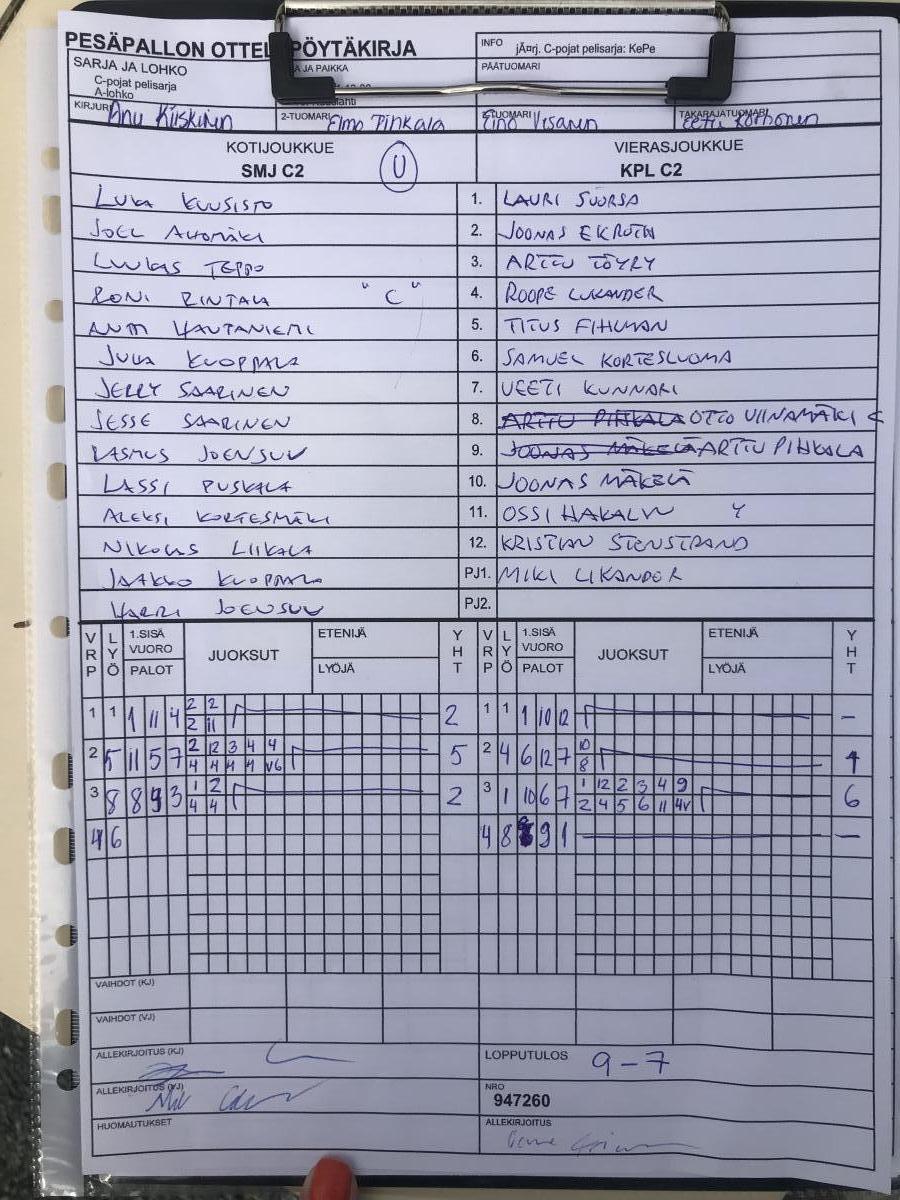 PESÄPALLON OTTEL PÖYTÄKIRJA
INFO jÃ¤rj. C-pojat pelisarja: KePe
SARJA JA LOHKO
A JA PAIKKA
PÄÄTUOMARI
C-pojat pelisarja
A-lohko
KIRJURI Anu Kiiskinen
2-TUOMARI Elmo Pihkala
Eino Visanen
TAKARAJATUOMARI Eetu Korhonen
KOTIJOUKKUE VIERASJOUKKUE
SMJ C2 U KPL C2
LUKA KUUSISTO 1. LAURI SUORSA
JOEL ALAMÄKI 2. JOONAS EKROTH
LUUKAS TEPPO 3. ARTTU TÖYRY
RONI RINTALA "C" 4. ROOPE LUKANDER
ANTTI HAUTANIEMI 5. TITUS FIHLMAN
JUKA KUOPPALA 6. SAMUEL KORTESLUOMA
JERRY SAARINEN 7. VEETI KUNNARI
JESSE SAARINEN 8. ARTTU PIHKALA OTTO VIINAMÄKI C
RASMUS JOENSUU 9. JOONAS MÄKELÄ ARTTU PIHKALA
LASSI PUSKALA 10. JOONAS MÄKELÄ
ALEKSI KORTESMÄKI 11. OSSI HAKALA Y
NIKOLAS LIIKALA 12. KRISTIAN STENSTRAND
JAAKKO KUOPPALA PJ1. MIKI LIKANDER
HARRI JOENSUU PJ2.
VRP LYÖ 1.SISÄ VUORO PALOT JUOKSUT ETENIJÄ LYÖJÄ YHT VRP LYÖ 1.SISÄ VUORO PALOT JUOKSUT ETENIJÄ LYÖJÄ YHT
1 1 1 11 4 2 2 2 1 1 1 10 12 -
2 11
2 5 11 5 7 2 12 3 4 4 5 2 4 6 12 7 10 1
4 4 4 4 V6 8
3 8 8 9 3 1 2 2 3 1 10 6 7 1 12 2 3 4 9 6
4 4 2 4 5 6 11 4V
4 6 4 8 9 1 -
VAIHDOT (KJ)
VAIHDOT (VJ)
ALLEKIRJOITUS (KJ)
LOPPUTULOS 9-7
ALLEKIRJOITUS (VJ)
NRO
947260
HUOMAUTUKSET
ALLEKIRJOITUS